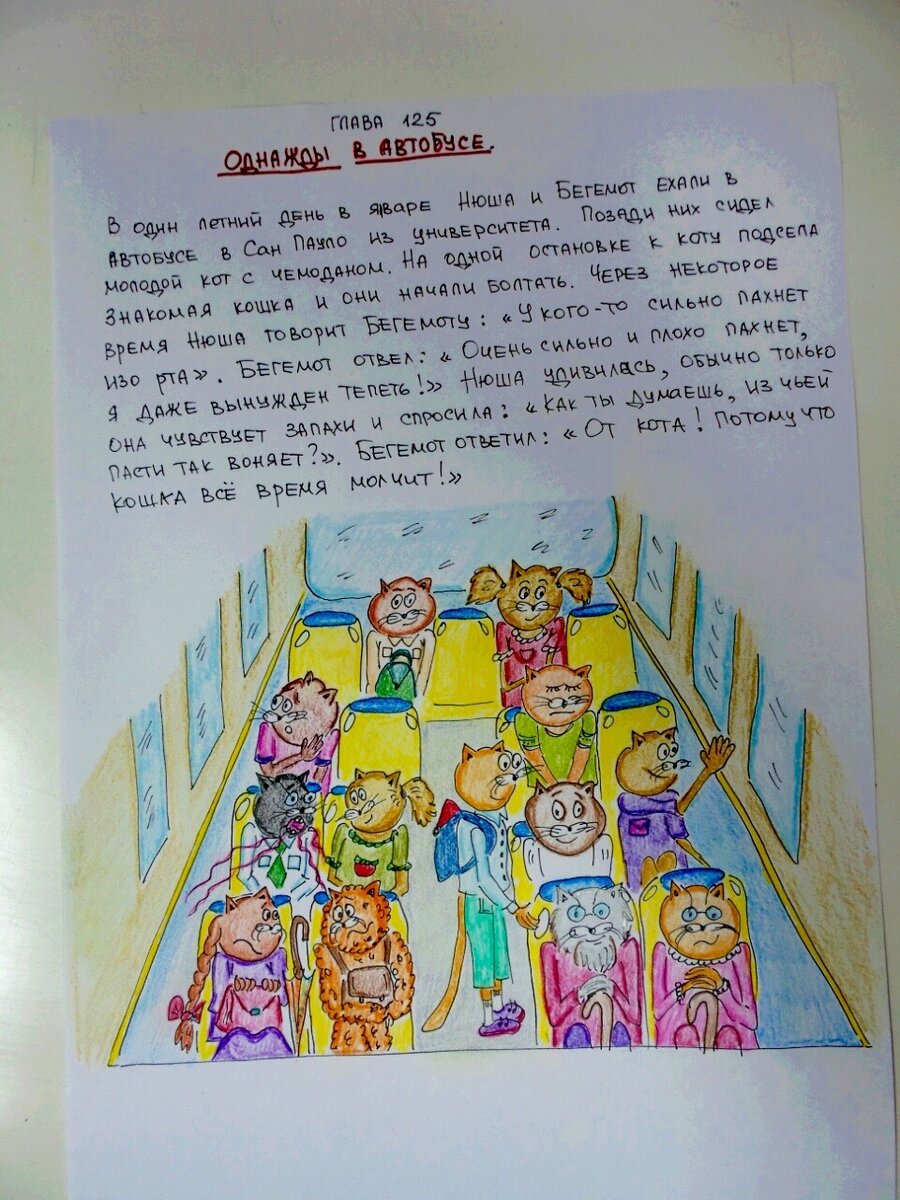 ГЛАВА 125
ОДНАЖДЫ В АВТОБУСЕ.
В один летний день в январе Нюша и Бегемот ехали в
автобусе в Сан Пауло из университета. Позади них сидел
молодой кот с чемоданом. На одной остановке к коту подсела
знакомая кошка и они начали болтать. Через некоторое
время Нюша говорит Бегемоту: «У кого-то сильно пахнет
изо рта». Бегемот ответ: «Очень сильно и плохо пахнет,
я даже вынужден тепеть!» Нюша удивилась, обычно только
она чувствует запахи и спросила: «Как ты думаешь, из чьей
пасти так воняет?». Бегемот ответил: «От кота! Потому что
кошка всё время молчит!»